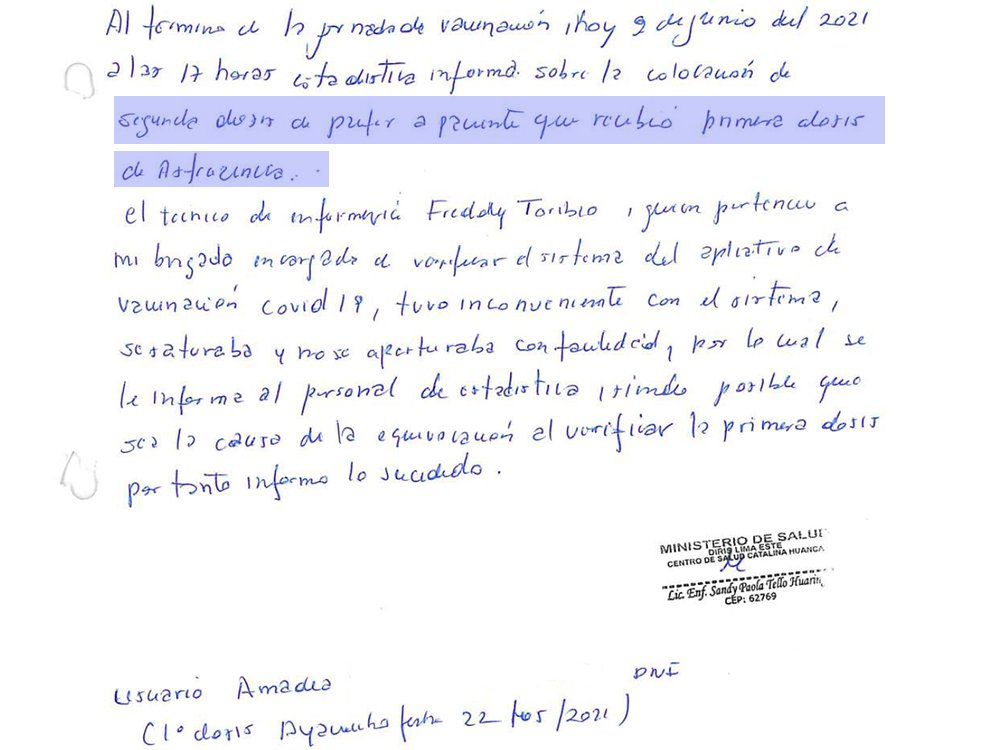 Al termino de la jornada de vacunación, hoy 9 de junio del 2021
a las 17 horas estadistica informa sobre la colocación de
segunda dosis de pfizer a paciente que recibió primera dosis
de Astrazeneca.
el tecnico de enfermería Freddy Toribio, quien pertenece a
mi brigada encargada de verificar el sistema del aplicativo de
vacunación covid 19, tuvo inconveniente con el sistema,
se saturaba y no se aperturaba con facilidad, por lo cual se
le informa al personal de estadistica, siendo posible que
sea la causa de la equivocación al verificar la primera dosis
por tanto informo lo sucedido.
MINISTERIO DE SALUD
DIRIS LIMA ESTE
CENTRO DE SALUD CATALINA HUANCA
Lic. Enf. Sandy Paola Tello Huarin
CEP: 62769
DNI
Usuario Amadea
(1° dosis Ayacucho fecha 22 /05/2021)